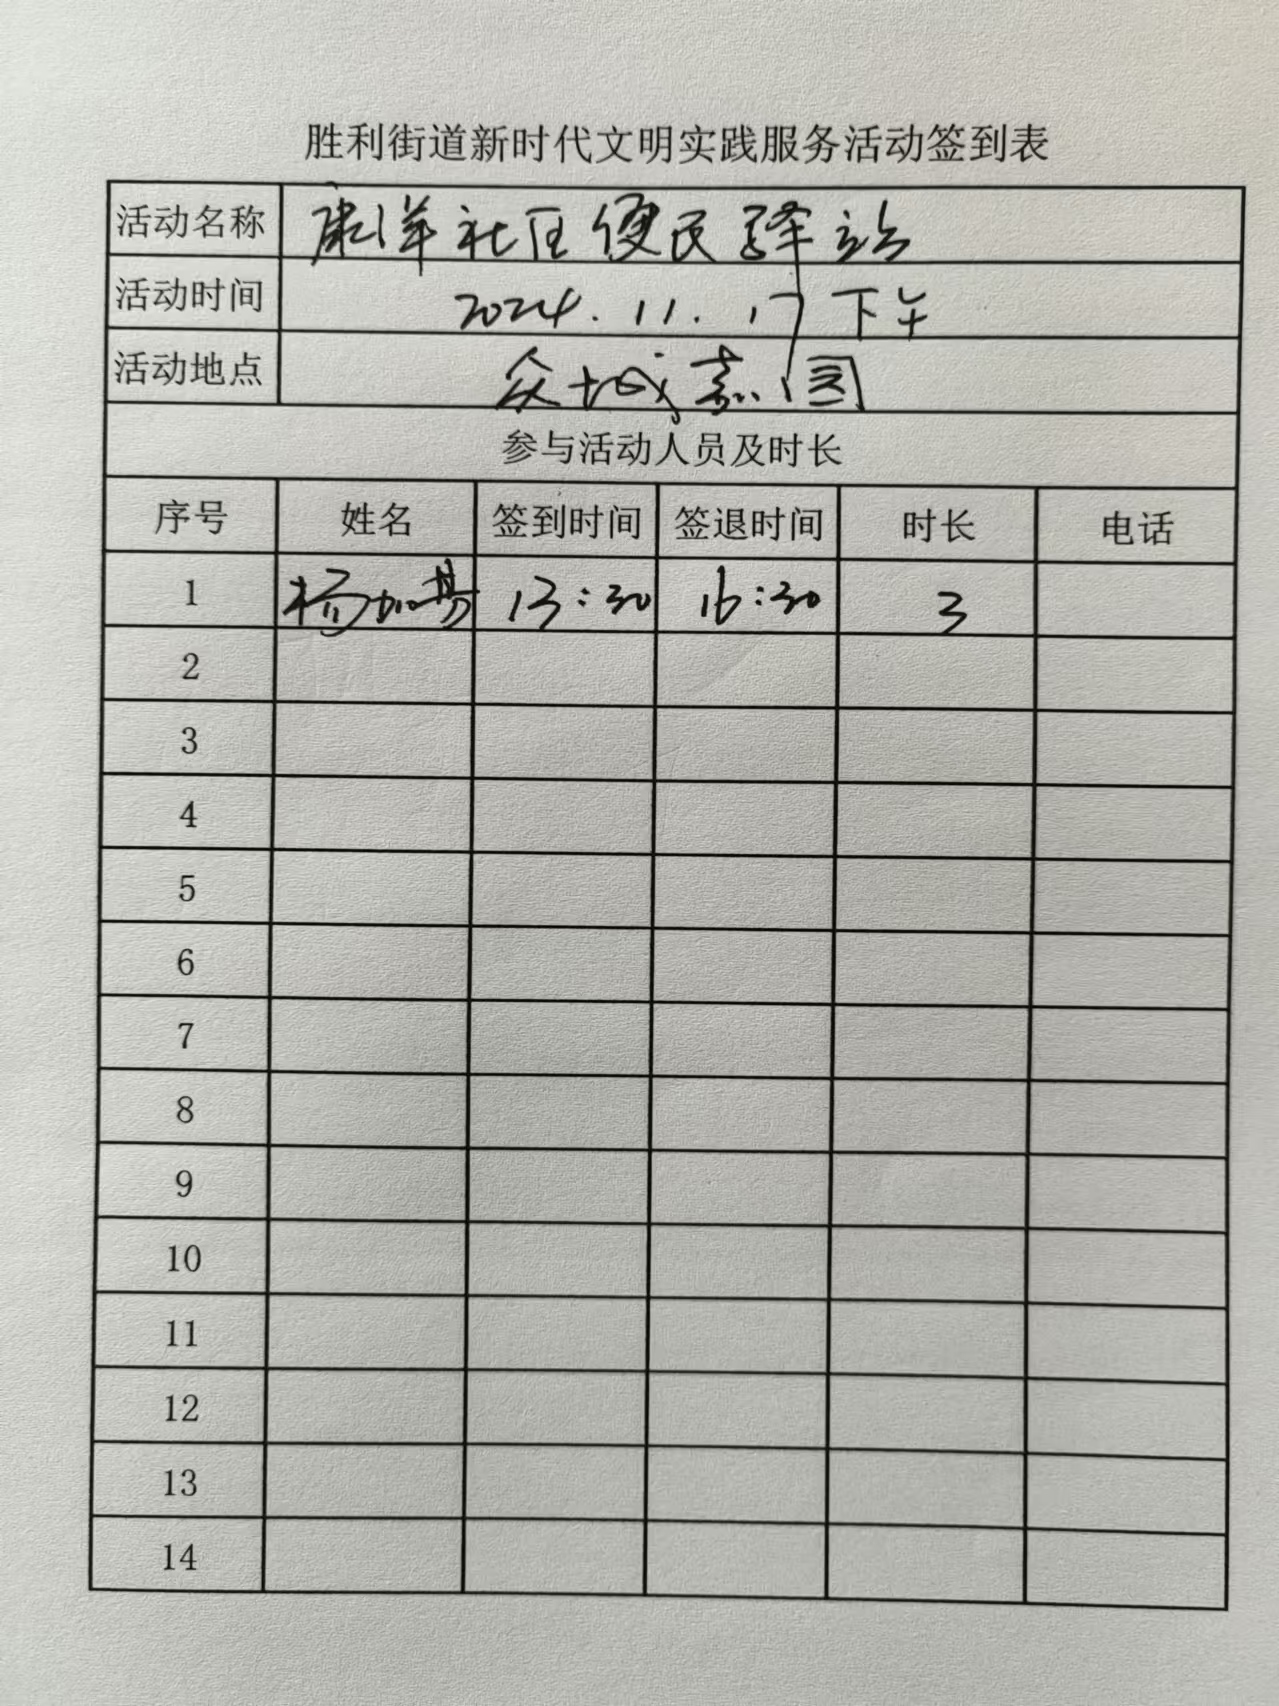 胜利街道新时代文明实践服务活动签到表
活动名称 康洋社区便民驿站
活动时间 2024.11.17下午
活动地点 众城嘉园
参与活动人员及时长
序号 姓名 签到时间 签退时间 时长 电话
1 杨加 13:30 16:30 3
2
3
4
5
6
7
8
9
10
11
12
13
14